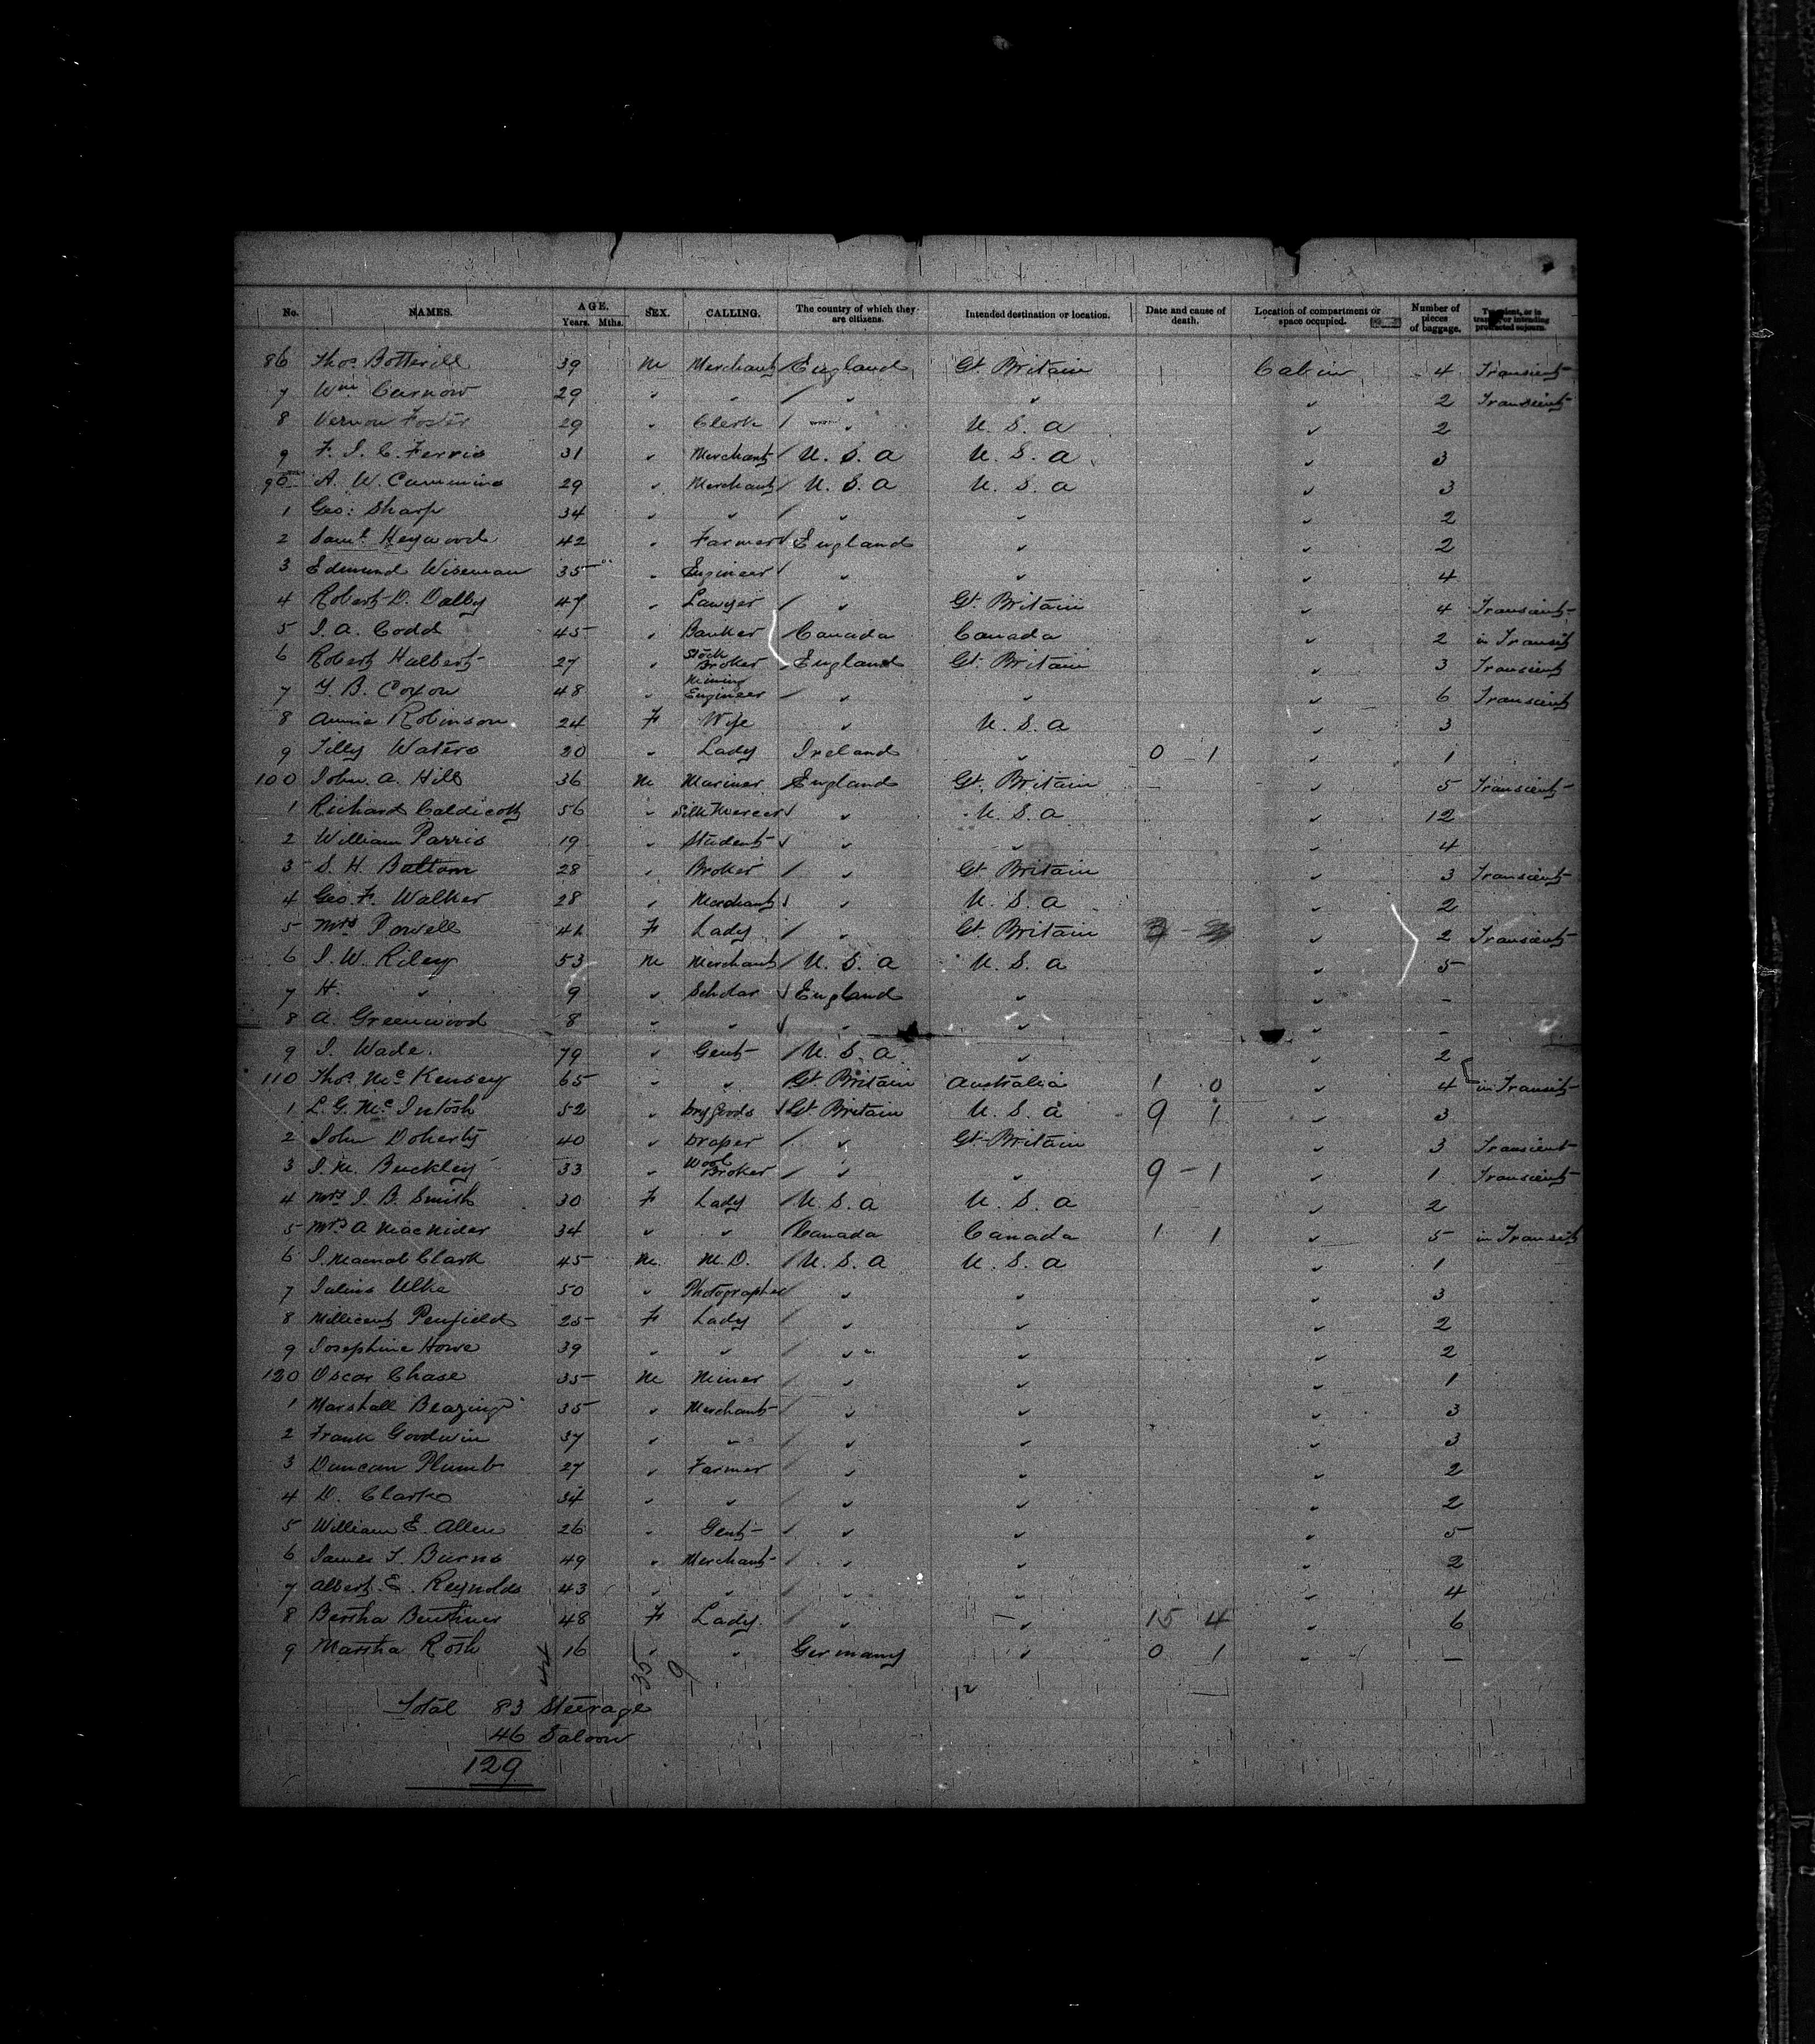 No. NAMES. AGE. Years. Mths. SEX. CALLING. The country of which they are citizens. Intended destination or location. Date and cause of death. Location of compartment or space occupied. Number of pieces of baggage.
86 Thos. Botterill 39 M Merchant England Gt. Britain Cabin 4 Transient
7 Wm Curnow 29 " " " " " 2 Transient
8 Vernon Foster 29 " Clerk " U.S.A " 2
9 F. I. C. Ferris 31 " Merchant U.S.A U.S.A " 3
90 A. W. Cummins 29 " Merchant U.S.A U.S.A " 3
1 Geo: Sharp 34 " " " " " 2
2 Saml. Heywood 42 " Farmer England " " 2
3 Edmund Wiseman 35 " Engineer " " " 4
4 Robert D. Dalby 47 " Lawyer " Gt. Britain " 4 Transient
5 I. A. Codd 45 " Banker Canada Canada " 2 in Transit
6 Robert Halbert 27 " Stock Broker England Gt. Britain " 3 Transient
7 Y. B. Coxon 48 " Mining Engineer " " " 6 Transient
8 Annie Robinson 24 F Wife " U.S.A " 3
9 Tilly Waters 20 " Lady Ireland " 0 - 1 " 1
100 John A. Hill 36 M Mariner England Gt. Britain " 5 Transient
1 Richard Caldicott 56 " Silk Mercer " U.S.A " 12
2 William Parris 19 " Student " " " 4
3 S. H. Baltam 28 " Broker " Gt Britain " 3 Transient
4 Geo. F. Walker 28 " Merchant " U.S.A " 2
5 Mrs Powell 41 F Lady " Gt. Britain " 2 Transient
6 I. W. Riley 53 M Merchant U.S.A U.S.A " 5
7 H. " 9 " Scholar England " " -
8 A. Greenwood 8 " " " " " -
9 I. Wade 79 " Gent U.S.A " " 2
110 Thos. McKensey 65 " " Gt Britain Australia 1 0 " 4 in Transit
1 L. G. McIntosh 52 " Dry Goods Gt Britain U.S.A 9 1 " 3
2 John Doherty 40 " Draper " Gt Britain " 3 Transient
3 I. M. Buckley 33 " Wool Broker " " 9 - 1 " 1 Transient
4 Mrs I. B. Smith 30 F Lady U.S.A U.S.A " 2
5 Mrs A MacNider 34 " " Canada Canada 1 1 " 5 in Transit
6 I. Macnab Clark 45 M M.D. U.S.A U.S.A " 1
7 Julius Ulke 50 " Photographer " " " 3
8 Millicent Penfield 25 F Lady " " " 2
9 Josephine Howe 39 " " " " " 2
120 Oscar Chase 35 M Miner " " " 1
1 Marshall 35 " Merchant " " " 3
2 Frank Goodwin 37 " " " " " 3
3 Duncan Plumb 27 " Farmer " " " 2
4 D. Clarke 34 " " " " " 2
5 William E. Allen 26 " Gent " " " 5
6 James T. Burns 49 " Merchant " " " 2
7 Albert E. Reynolds 43 " " " " " 4
8 Bertha 48 F Lady " " 15 4 " 6
9 Martha Roth 16 " " Germany " 0 1 " -
35 9 12
Total 83 Steerage
46 Saloon
129